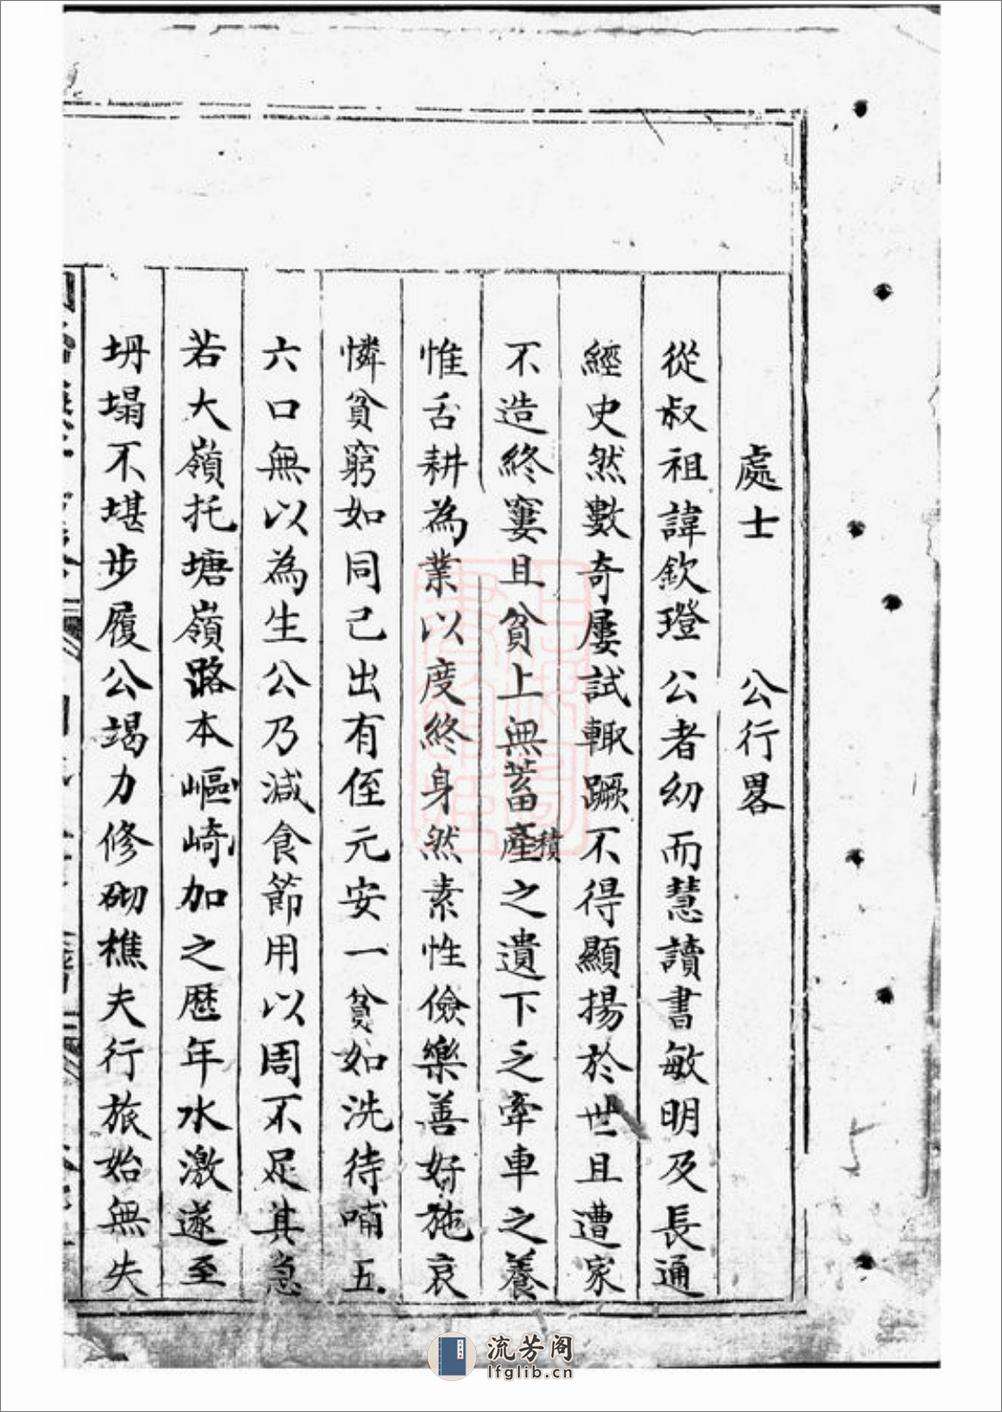 處士　公行畧
從叔祖諱欽璒公者幼而慧讀書敏明及長通
經史然數奇屢試輙蹶不得顯揚於世且遭家
不造終窶且貧上無蓄產積之遺下乏牽車之養
惟舌耕為業以度終身然素性儉樂善好施哀
憐貧窮如同己出有侄元安一貧如洗待哺五
六口無以為生公乃減食節用以周不足其急
若大嶺托塘嶺路本嶇崎加之歷年水激遂至
坍塌不堪步履公竭力修砌樵夫行旅始無失
流芳阁
lfglib.cn